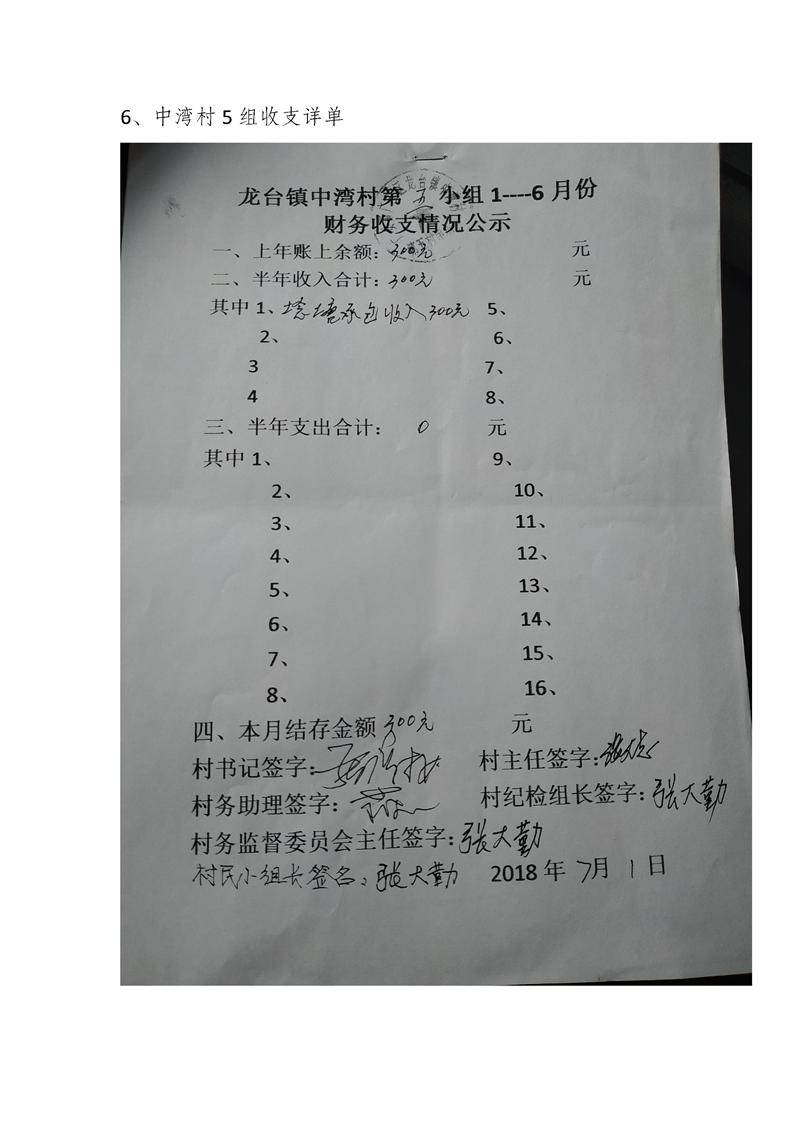 6、中湾村5组收支详单
龙台镇中湾村第五小组1----6月份
财务收支情况公示
一、上年账上余额：300元 元
二、半年收入合计：300元 元
其中1、堰塘承包收入300元 5、
2、 6、
3 7、
4 8、
三、半年支出合计： 0 元
其中1、 9、
2、 10、
3、 11、
4、 12、
5、 13、
6、 14、
7、 15、
8、 16、
四、本月结存金额300元 元
村书记签字： 村主任签字：
村务助理签字： 村纪检组长签字：张大勤
村务监督委员会主任签字：张大勤
村民小组长签名：张大勤 2018年7月1日